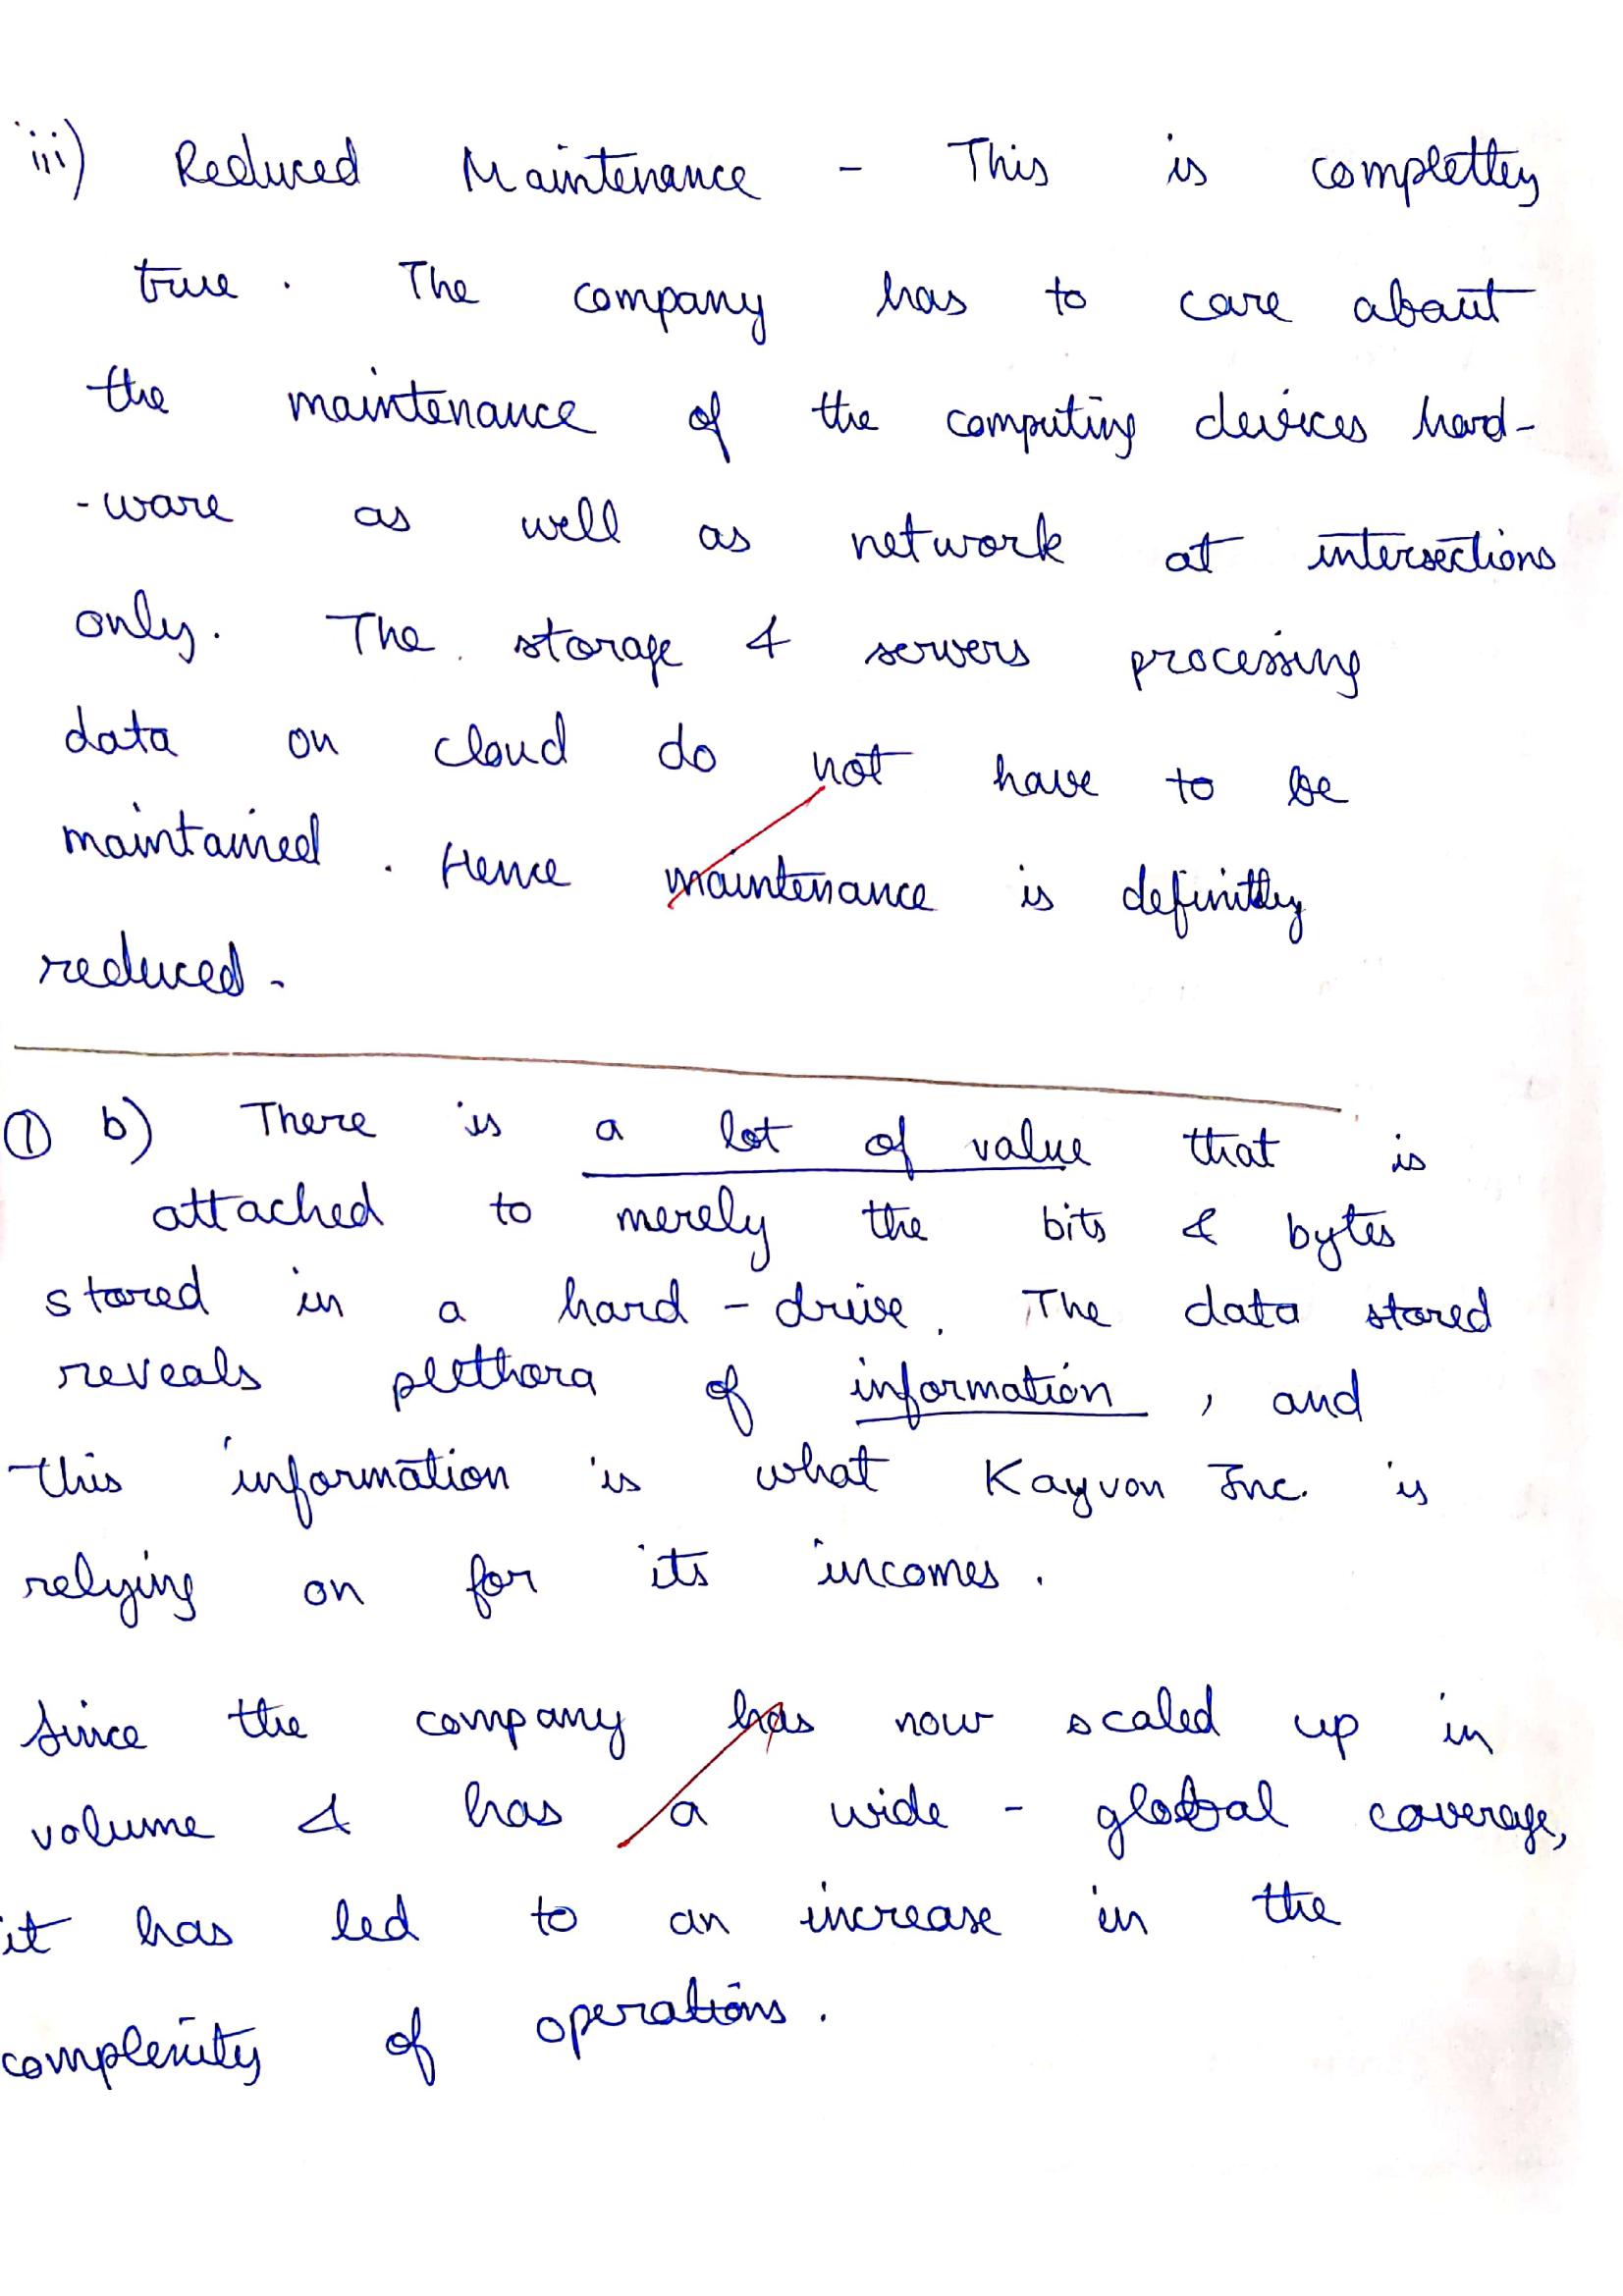 iii) Reduced Maintenance - This is completley
true. The company has to care about
the maintenance of the computing devices hard-
-ware as well as network at intersections
only. The storage & servers processing
data on cloud do not have to be
maintained. Hence maintenance is definitley
reduced.
① b) There is a lot of value that is
attached to merely the bits & bytes
stored in a hard-drive. The data stored
reveals plethora of information, and
this information is what Kayvon Inc. is
relying on for its incomes.
Since the company has now scaled up in
volume & has a wide-global coverage,
it has led to an increase in the
complexity of operations.